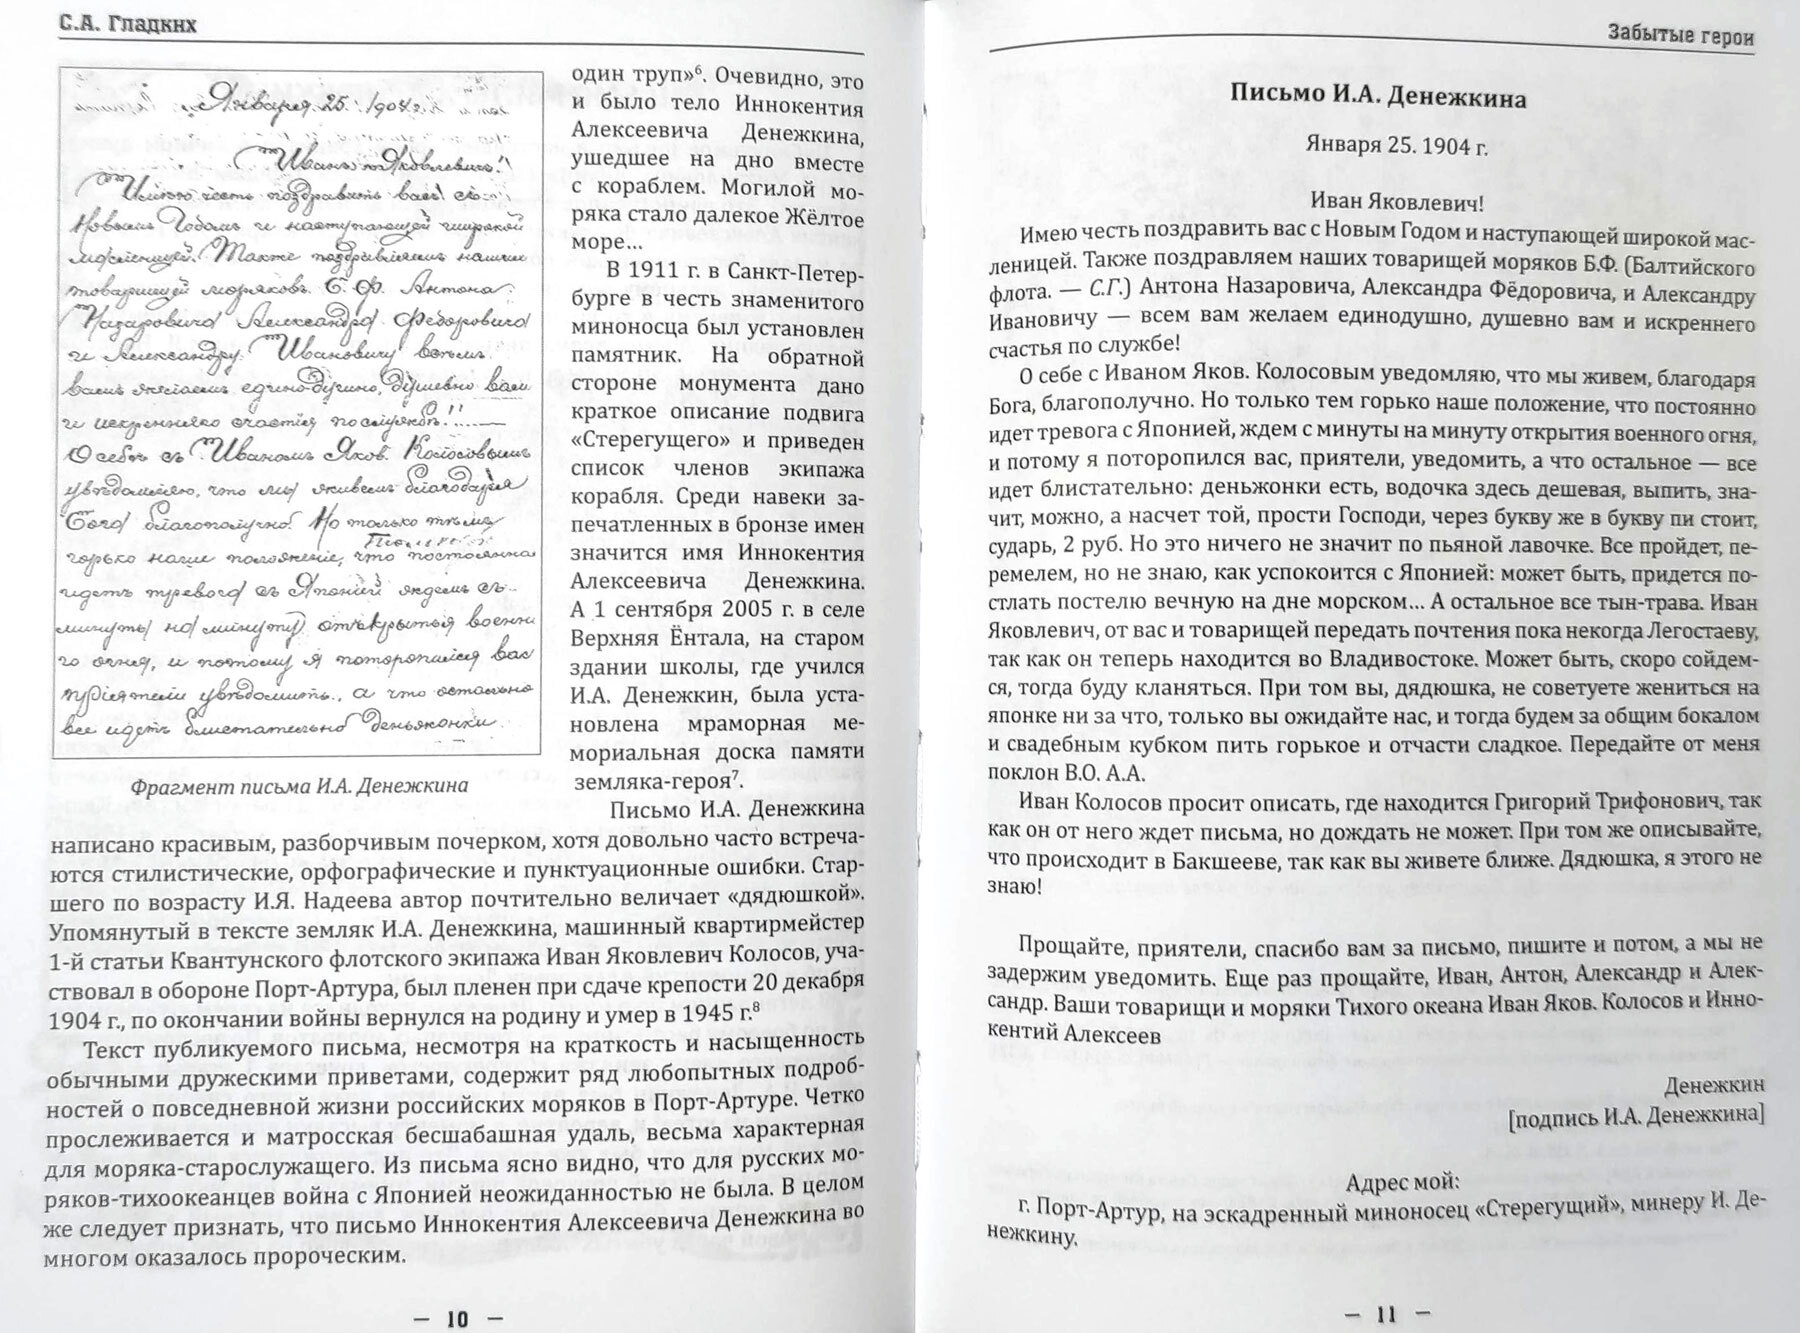 С.А. Гладких
Января 25. 1904 г.
Иванъ Яковлевичъ!
Имею честь поздравить васъ съ
Новымъ Годомъ и наступающей широкой
масленицей. Также поздравляемъ нашихъ
товарищей моряковъ Б. Ф. Антона
Назаровича Александра Федоровича
и Александру Ивановичу всѣмъ
вамъ желаемъ единодушно, душевно вам
и искренняго счастія по службѣ!
О себѣ съ Иваномъ Яков. Колосовымъ
увѣдомляю, что мы живемъ благодаря
Бога благополучно! Но только тѣмъ
горько наше положение, что постоянно
идетъ тревога съ Японіей ждемъ съ
минуты на минуту открытья военн
го огня, и потому я поторопился вас
пріятели увѣдомить, а что остально
все идетъ блистательно деньжонки
Фрагмент письма И.А. Денежкина
один труп»⁶. Очевидно, это
и было тело Иннокентия
Алексеевича Денежкина,
ушедшее на дно вместе
с кораблем. Могилой мо-
ряка стало далекое Жёлтое
море...
В 1911 г. в Санкт-Петер-
бурге в честь знаменитого
миноносца был установлен
памятник. На обратной
стороне монумента дано
краткое описание подвига
«Стерегущего» и приведен
список членов экипажа
корабля. Среди навеки за-
печатленных в бронзе имен
значится имя Иннокентия
Алексеевича Денежкина.
А 1 сентября 2005 г. в селе
Верхняя Ёнтала, на старом
здании школы, где учился
И.А. Денежкин, была уста-
новлена мраморная ме-
мориальная доска памяти
земляка-героя⁷.
Письмо И.А. Денежкина
написано красивым, разборчивым почерком, хотя довольно часто встреча-
ются стилистические, орфографические и пунктуационные ошибки. Стар-
шего по возрасту И.Я. Надеева автор почтительно величает «дядюшкой».
Упомянутый в тексте земляк И.А. Денежкина, машинный квартирмейстер
1-й статьи Квантунского флотского экипажа Иван Яковлевич Колосов, уча-
ствовал в обороне Порт-Артура, был пленен при сдаче крепости 20 декабря
1904 г., по окончании войны вернулся на родину и умер в 1945 г.⁸
Текст публикуемого письма, несмотря на краткость и насыщенность
обычными дружескими приветами, содержит ряд любопытных подроб-
ностей о повседневной жизни российских моряков в Порт-Артуре. Четко
прослеживается и матросская бесшабашная удаль, весьма характерная
для моряка-старослужащего. Из письма ясно видно, что для русских мо-
ряков-тихоокеанцев война с Японией неожиданностью не была. В целом
же следует признать, что письмо Иннокентия Алексеевича Денежкина во
многом оказалось пророческим.
— 10 —
Забытые герои
Письмо И.А. Денежкина
Января 25. 1904 г.
Иван Яковлевич!
Имею честь поздравить вас с Новым Годом и наступающей широкой мас-
леницей. Также поздравляем наших товарищей моряков Б.Ф. (Балтийского
флота. — С.Г.) Антона Назаровича, Александра Фёдоровича, и Александру
Ивановичу — всем вам желаем единодушно, душевно вам и искреннего
счастья по службе!
О себе с Иваном Яков. Колосовым уведомляю, что мы живем, благодаря
Бога, благополучно. Но только тем горько наше положение, что постоянно
идет тревога с Японией, ждем с минуты на минуту открытия военного огня,
и потому я поторопился вас, приятели, уведомить, а что остальное — все
идет блистательно: деньжонки есть, водочка здесь дешевая, выпить, зна-
чит, можно, а насчет той, прости Господи, через букву же в букву пи стоит,
сударь, 2 руб. Но это ничего не значит по пьяной лавочке. Все пройдет, пе-
ремелем, но не знаю, как успокоится с Японией: может быть, придется по-
стлать постелю вечную на дне морском... А остальное все тын-трава. Иван
Яковлевич, от вас и товарищей передать почтения пока некогда Легостаеву,
так как он теперь находится во Владивостоке. Может быть, скоро сойдем-
ся, тогда буду кланяться. При том вы, дядюшка, не советуете жениться на
японке ни за что, только вы ожидайте нас, и тогда будем за общим бокалом
и свадебным кубком пить горькое и отчасти сладкое. Передайте от меня
поклон В.О. А.А.
Иван Колосов просит описать, где находится Григорий Трифонович, так
как он от него ждет письма, но дождать не может. При том же описывайте,
что происходит в Бакшееве, так как вы живете ближе. Дядюшка, я этого не
знаю!
Прощайте, приятели, спасибо вам за письмо, пишите и потом, а мы не
задержим уведомить. Еще раз прощайте, Иван, Антон, Александр и Алек-
сандр. Ваши товарищи и моряки Тихого океана Иван Яков. Колосов и Инно-
кентий Алексеев
Денежкин
[подпись И.А. Денежкина]
Адрес мой:
г. Порт-Артур, на эскадренный миноносец «Стерегущий», минеру И. Де-
нежкину.
— 11 —